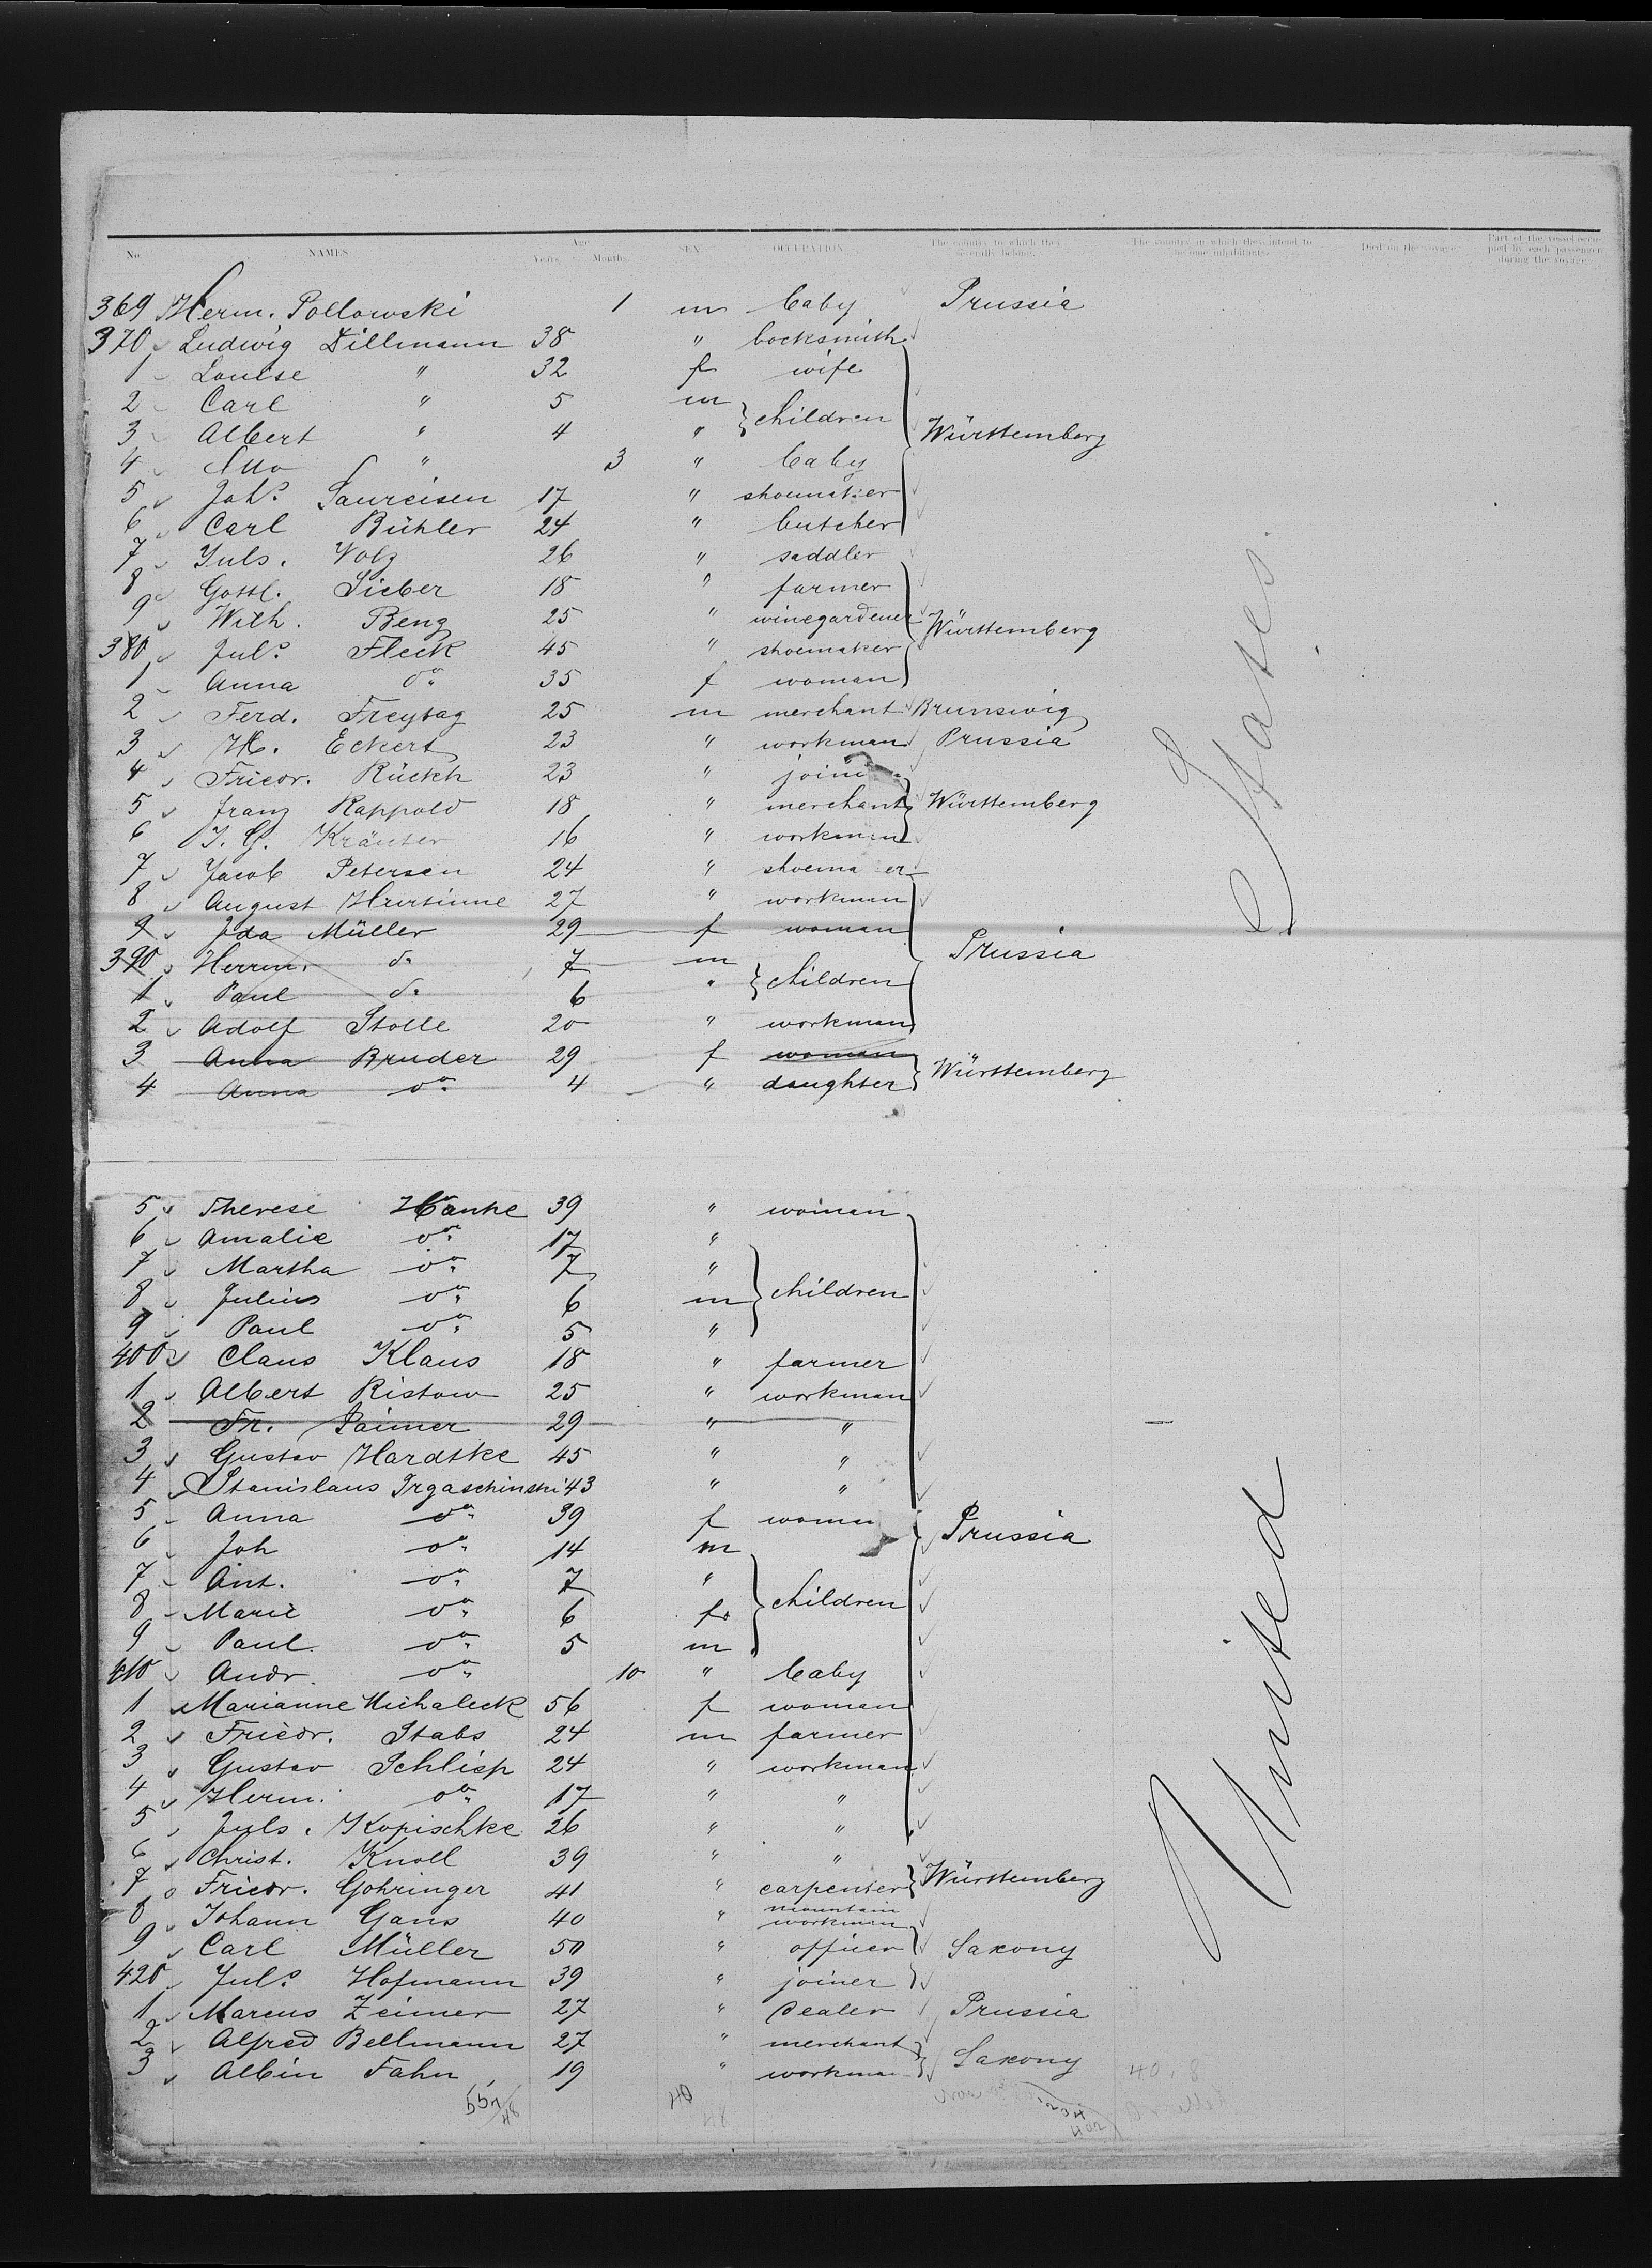 No. NAMES Age Years. Months. SEX. OCCUPATION. The country to which they severally belong. The country in which they intend to become inhabitants. Died on the voyage. Part of the vessel occupied by each passenger during the voyage.
369 Herm. Pollowski 1 m baby Prussia
370 Ludwig Dillmann 38 " locksmith
1 Louise " 32 f wife
2 Carl " 5 m
3 Albert " 4 " } children Württemberg
4 Otto " 3 " baby
5 Johs. Saureisen 17 " shoemaker
6 Carl Bühler 24 " butcher
7 Juls. Volz 26 " saddler
8 Gottl. Sieber 18 " farmer
9 Wilh. Beng 25 " winegardener Württemberg
380 Juls. Fleck 45 " shoemaker
1 Anna do. 35 f woman
2 Ferd. Freytag 25 m merchant Brunswig
3 H. Eckert 23 " workman Prussia
4 Friedr. Rückh 23 " joiner
5 Franz Rappold 18 " merchant Württemberg
6 J. G. Kräuter 16 " workman
7 Jacob Petersen 24 " shoemaker
8 August 27 " workman
9 Ida Müller 29 f woman
390 Herrm. do. 7 m Prussia
1 Paul do. 6 " } children
2 Adolf Stolle 20 " workman
3 Anna Bruder 29 f woman
4 Anna do. 4 " daughter Württemberg
5 Therese Hanke 39 " woman
6 Amalie do. 17 "
7 Martha do. 7 "
8 Julius do. 6 m } children
9 Paul do. 5 "
400 Claus Klaus 18 " farmer
1 Albert Ristow 25 " workman
2 Fr. 29 " "
3 Gustav Hardtke 45 " "
4 Stanislaus 43 " "
5 Anna do. 39 f woman Prussia
6 Joh do. 14 m
7 Ant. do. 7 "
8 Marie do. 6 f. } children
9 Paul do. 5 m
410 Andr. do. 10 " baby
1 Marianne Michaleck 56 f woman
2 Friedr. Stabs 24 m farmer
3 Gustav Schlisp 24 " workman
4 Herm. do. 17 " "
5 Juls. Kopischke 26 " "
6 Christ. Knoll 39 " "
7 Friedr. Gohringer 41 " carpenter Württemberg
8 Johann Gans 40 " mountain workman
9 Carl Müller 50 " officer Saxony
420 Juls. Hofmann 39 " joiner
1 Marcus Zeimer 27 " dealer Prussia
2 Alfred Bellmann 27 " merchant
3 Albin Fahn 19 " workman Saxony
United States.